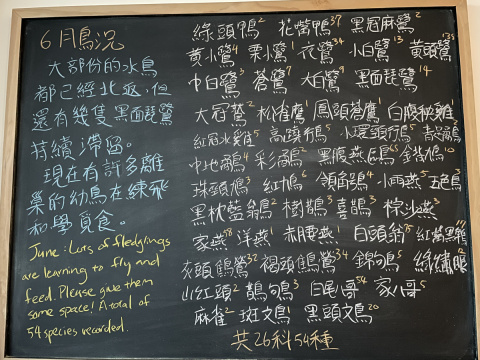 6月鳥況
大部份的水鳥
都已經北返，但
還有幾隻黑面琵鷺
持續滯留。
現在有許多離
巢的幼鳥在練飛
和學覓食。
June: Lots of fledglings
are learning to fly and
feed. Please give them
some space! A total of
54 species recorded.
綠頭鴨2 花嘴鴨37 黑冠麻鷺2
黃小鷺4 栗小鷺1 夜鷺34 小白鷺13 黃頭鷺
中白鷺3 蒼鷺7 大白鷺9 黑面琵鷺14
大冠鷲2 松雀鷹1 鳳頭蒼鷹1 白腹秧雞
紅冠水雞5 高蹺鴴5 小環頸鴴5
中地鷸4 彩鷸2 黑腹燕鷗65 金背鳩10
珠頸鳩7 紅鳩6 領角鴞4 小雨燕5 五色鳥3
黑枕藍鶲2 樹鵲3 喜鵲3 棕沙燕3
家燕58 洋燕1 赤腰燕1 白頭翁75 紅嘴黑鵯
灰頭鷦鶯32 褐頭鷦鶯34 錦鴝5 綠繡眼
山紅頭2 鵲鴝3 白尾八哥54 家八哥5
麻雀2 斑文鳥1 黑頭文鳥20
共26科54種